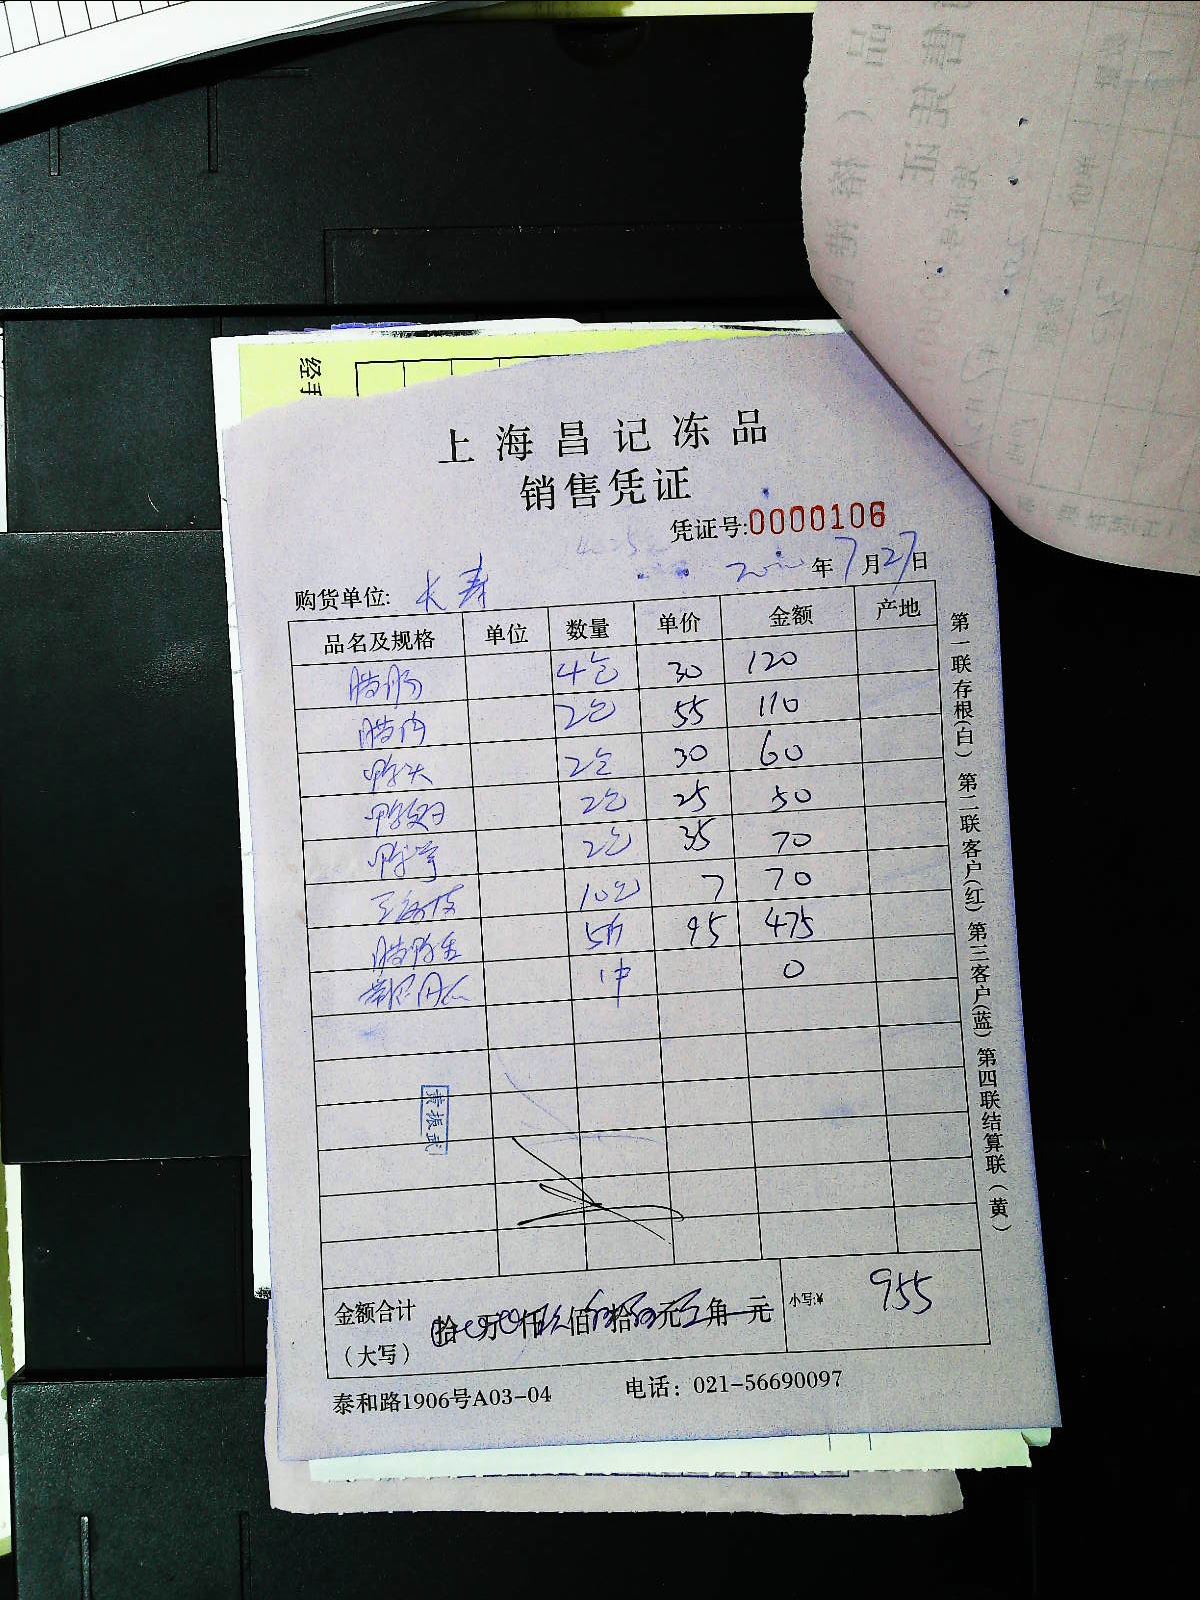 经手
上海昌记冻品
销售凭证
凭证号:0000106
年7月27日
购货单位: 长寿
品名及规格 单位 数量 单价 金额 产地
腊肠 4包 30 120
腊肉 2包 55 110
鸭头 2包 30 60
鸭翅 2包 25 50
鸭掌 2包 35 70
10包 7 70
95 475
0
黄振武
金额合计 拾 万 仟 佰 拾 元 角 元 小写:¥ 955
（大写）
泰和路1906号A03-04 电话：021-56690097
第一联存根(白) 第二联客户(红) 第三客户(蓝) 第四联结算联（黄）